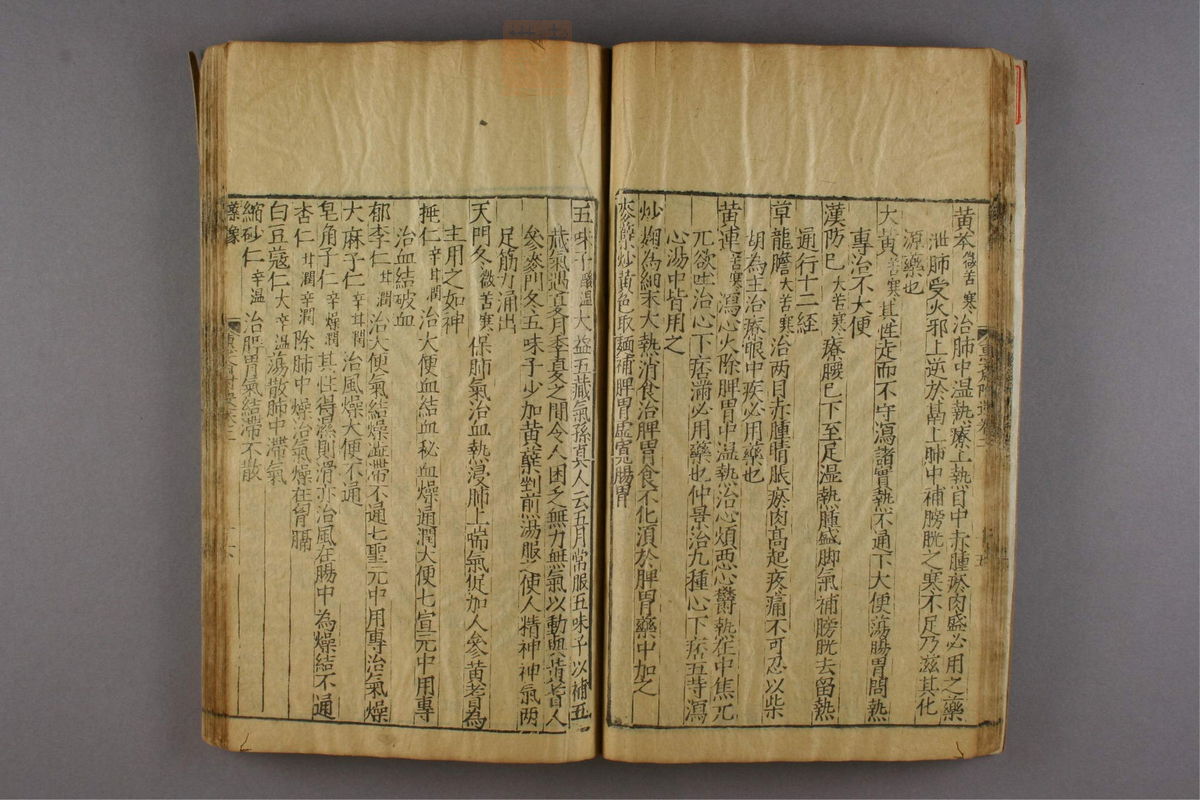 黃芩微苦寒治肺中温熱療上熱目中赤腫瘀肉盛必用之藥
泄肺受火邪上逆於鬲上肺中補膀胱之寒不足乃滋其化
源藥也
大黃苦寒其性走而不守瀉諸實熱不通下大便蕩腸胃間熱
專治不大便
漢防已大苦寒療腰已下至足湿熱腫盛脚氣補膀胱去留熱
通行十二經
草龍膽大苦寒治两目赤腫睛脹瘀肉髙起疼痛不可忍以柴
胡為主治療眼中疾必用藥也
黃連苦寒瀉心火除脾胃中温熱治心煩悪心欝熱在中焦兀
兀欲吐治心下痞滿必用藥也仲景治九種心下痞五等瀉
心湯中皆用之
炒麯為細末大熱消食治脾胃食不化湏於脾胃藥中加之
麥蘖炒黃色取麵補脾胃虛寬腸胃
五味子酸温大益五藏氣孫真人云五月常服五味子以補五
藏氣遇夏月季夏之間令人困乏無力無氣以動與黃耆人
參麥門冬五味子少加黃蘗剉煎湯服之使人精神神氣两
足筋力涌出
天門冬微苦寒保肺氣治血熱浸肺上喘氣促加人參黃耆為
主用之如神
桃仁辛甘潤治大便血結血秘血燥通潤大便七宣元中用專
治血結破血
郁李仁甘潤治大便氣結燥澁滯不通七聖元中用專治氣燥
大麻子仁辛甘潤治風燥大便不通
皂角子仁辛燥潤其性得濕則滑亦治風在腸中為燥結不通
杏仁甘潤辛潤除肺中燥治氣燥在胷膈
白豆蔻仁大辛温蕩散肺中滯氣
縮砂仁辛温治脾胃氣結滯不散